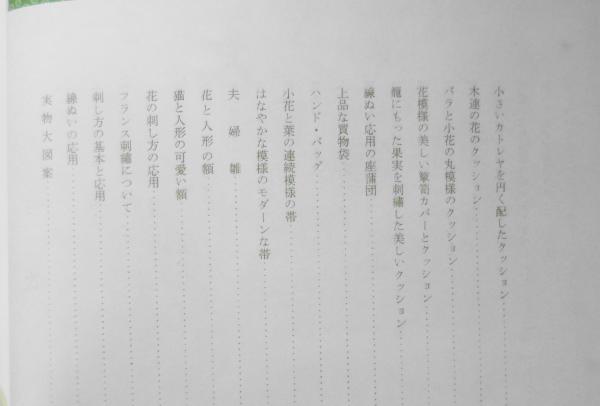 小さいカトレヤを円く配したクッション
木連の花のクッション
バラと小花の丸模様のクッション
花模様の美しい簞笥カバーとクッション
籠にもった果実を刺繡した美しいクッション
線ぬい応用の座蒲団
上品な買物袋
ハンド・バッグ
小花と葉の連続模様の帯
はなやかな模様のモダーンな帯
夫婦雛
花と人形の額
猫と人形の可愛い額
花の刺し方の応用
フランス刺繡について
刺し方の基本と応用
線ぬいの応用
実物大図案